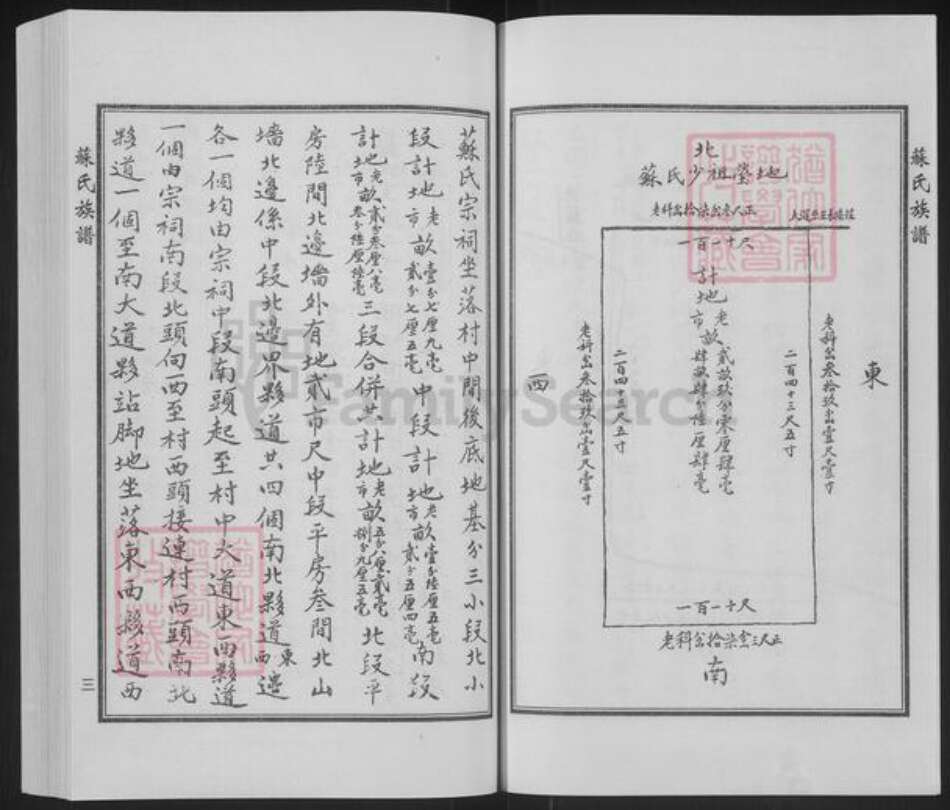 蘇氏族譜
北
蘇氏少祖塋地
一百一十尺
東
老科岔叁拾玖岔壹尺壹寸
二百四十三尺五寸
計地老市畝貳畝玖分零厘肆毫肆畝肆分陸厘肆毫
二百四十三尺五寸
老科岔叁拾玖岔壹尺壹寸
西
一百一十尺
南
蘇氏宗祠坐落村中間後底地基分三小段北小
段計地老市畝壹分七厘九毫貳分七厘五毫中段計地老市畝壹分陸厘五毫貳分五厘四毫南段
計地老市畝貳分叁厘八毫叁分陸厘陸毫三段合併共計地老市畝五分八厘貳毫捌分九厘五毫北段平
房陸間北邊墻外有地貳市尺中段平房叁間北山
墻北邊係中段北邊界夥道共四個南北夥道東西邊
各一個均由宗祠中段南頭起至村中大道東西夥道
一個由宗祠南段北頭向西至村西頭接連村西頭南北
夥道一個至南大道夥站脚地坐落東西夥道西
蘇氏族譜
三
FamilySearch